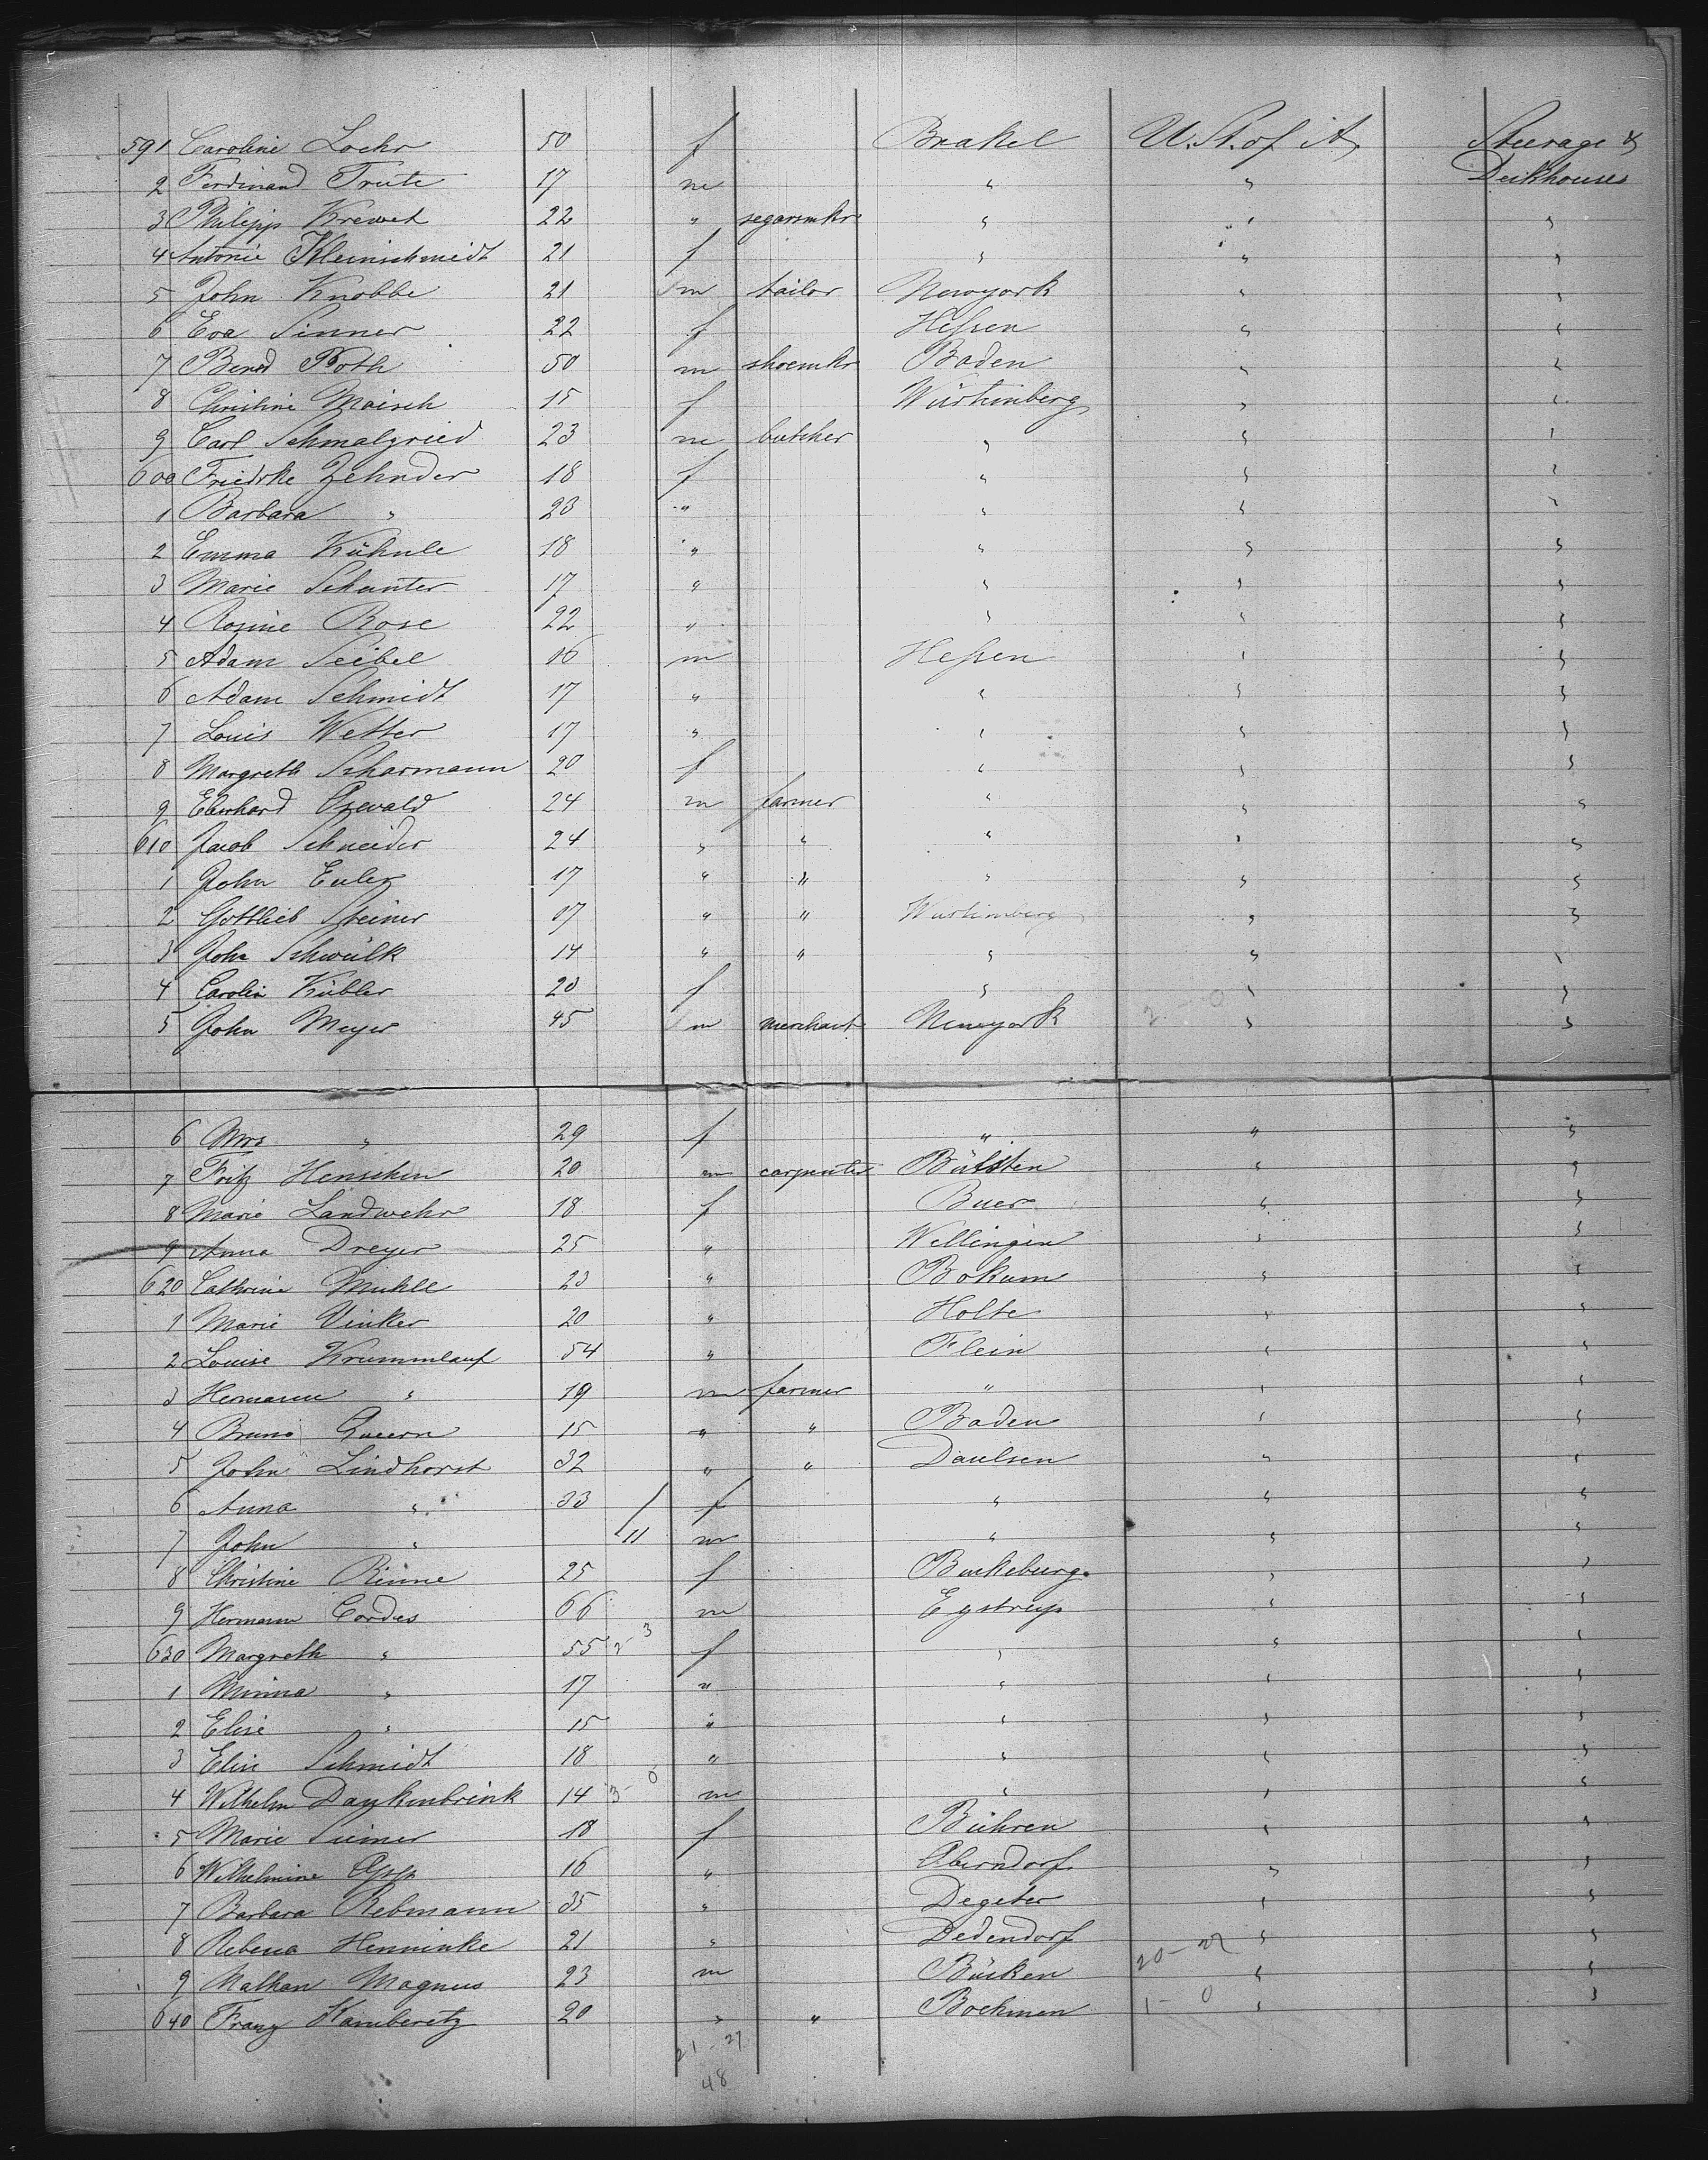 591 Caroline Lochr 50 f Brakel U. St. of A. Steerage &
2 Ferdinand Trute 17 m " " Deckhouses
3 Philipp Krewet 22 " segarmkr " " "
4 Antonie Kleinschmidt 21 f " " "
5 John Knobbe 21 m tailor Newyork " "
6 Eva Sinner 22 f Heſsen " "
7 Bernd Roth 50 m shoemkr Baden " "
8 Christine Maisch 15 f Würtemberg " "
9 Carl Schmalzried 23 m butcher " " "
600 Friedrke Zehnder 18 f " " "
1 Barbara " 23 " " " "
2 Emma Kühnle 18 " " " "
3 Marie Schanter 17 " " " "
4 Rosine Rose 22 " " " "
5 Adam Seibel 16 m Heſsen " "
6 Adam Schmidt 17 " " " "
7 Louis Wetter 17 " " " "
8 Margreth Scharmann 20 f " " "
9 Eberhard Oswald 24 m farmer " " "
610 Jacob Schneider 24 " " " " "
1 John Euler 17 " " " " "
2 Gottlieb Steiner 17 " " Würtemberg " "
3 John Schwülk 14 " " " " "
4 Carolin Kübler 20 f " " "
5 John Meyer 45 m merchant Newyork " "
6 Mrs " 29 f " " "
7 Fritz Henschen 20 m carpenter " "
8 Marie Landwehr 18 f Buer " "
9 Anna Dreyer 25 " Wellingen " "
620 Cathrine Muhle 23 " Bokum " "
1 Marie Vinker 20 " Holte " "
2 Louise Krummlauf 54 " Flein " "
3 Hermann " 19 m farmer " " "
4 Bruno 15 " " Baden " "
5 John Lindhorst 32 " " Daulsen " "
6 Anna " 33 f " " "
7 John " 11 m " " "
8 Christine Rinne 25 f Buckeburg " "
9 Hermann Cordes 66 m Egstrup " "
630 Margreth " 55 f " " "
1 Minna " 17 " " " "
2 Elise " 15 " " " "
3 Elise Schmidt 18 " " " "
4 Wilhelm Dankenbrink 14 m " " "
5 Marie Siemer 18 f Bühren " "
6 Wilhelmine 16 " Oberndorf " "
7 Barbara Rebmann 35 " Degeter " "
8 Rebecca Henninke 21 " Dedendorf " "
9 Nathan Magnus 23 m Bücken " "
640 Franz Kamberitz 20 " " Boehmen " "
21 - 27
48